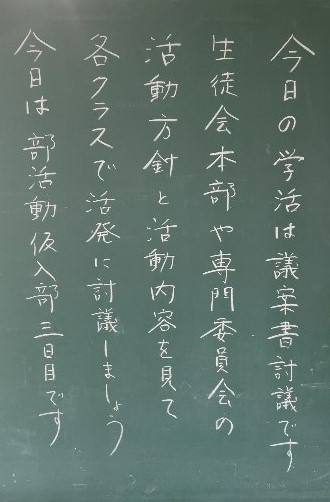 今日の学活は議案書討議です
生徒会本部や専門委員会の
活動方針と活動内容を見て
各クラスで活発に討議しましょう
今日は部活動仮入部三日目です